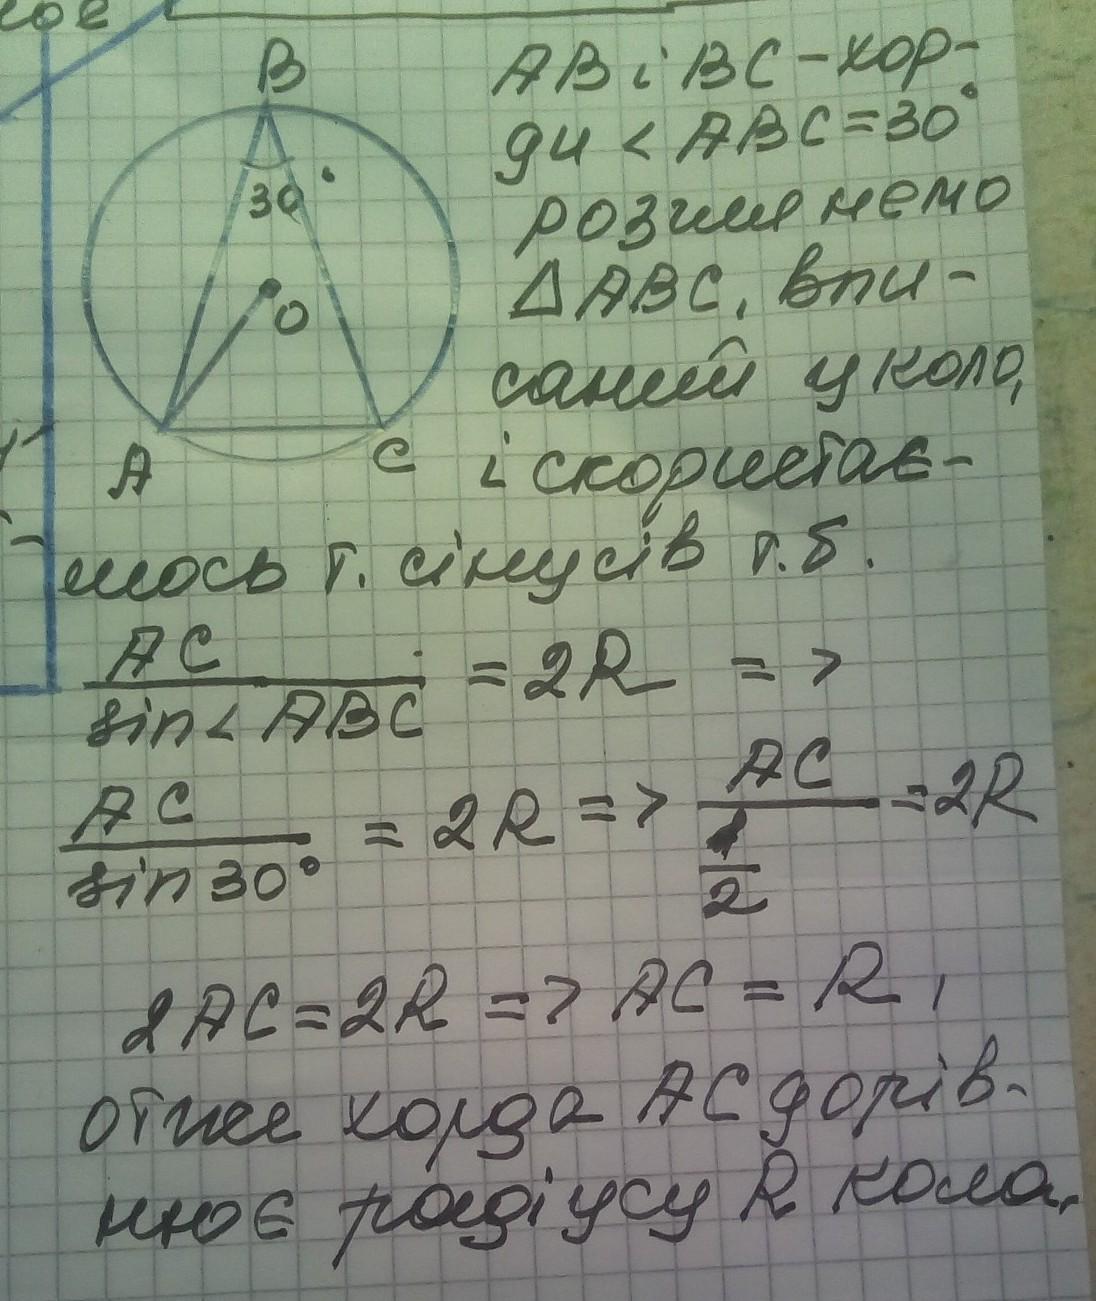 ное
B
30°
O
A
C
AB і BC - хор-
ди < ABC = 30°
розглянемо
Δ ABC, впи-
саний у коло,
і скористає-
мось т. сінусів т.б.
AC / sin < ABC = 2R =>
AC / sin 30° = 2R => AC / 1/2 = 2R
2AC = 2R => AC = R,
отже хорда AC дорів-
нює радіусу R кола.